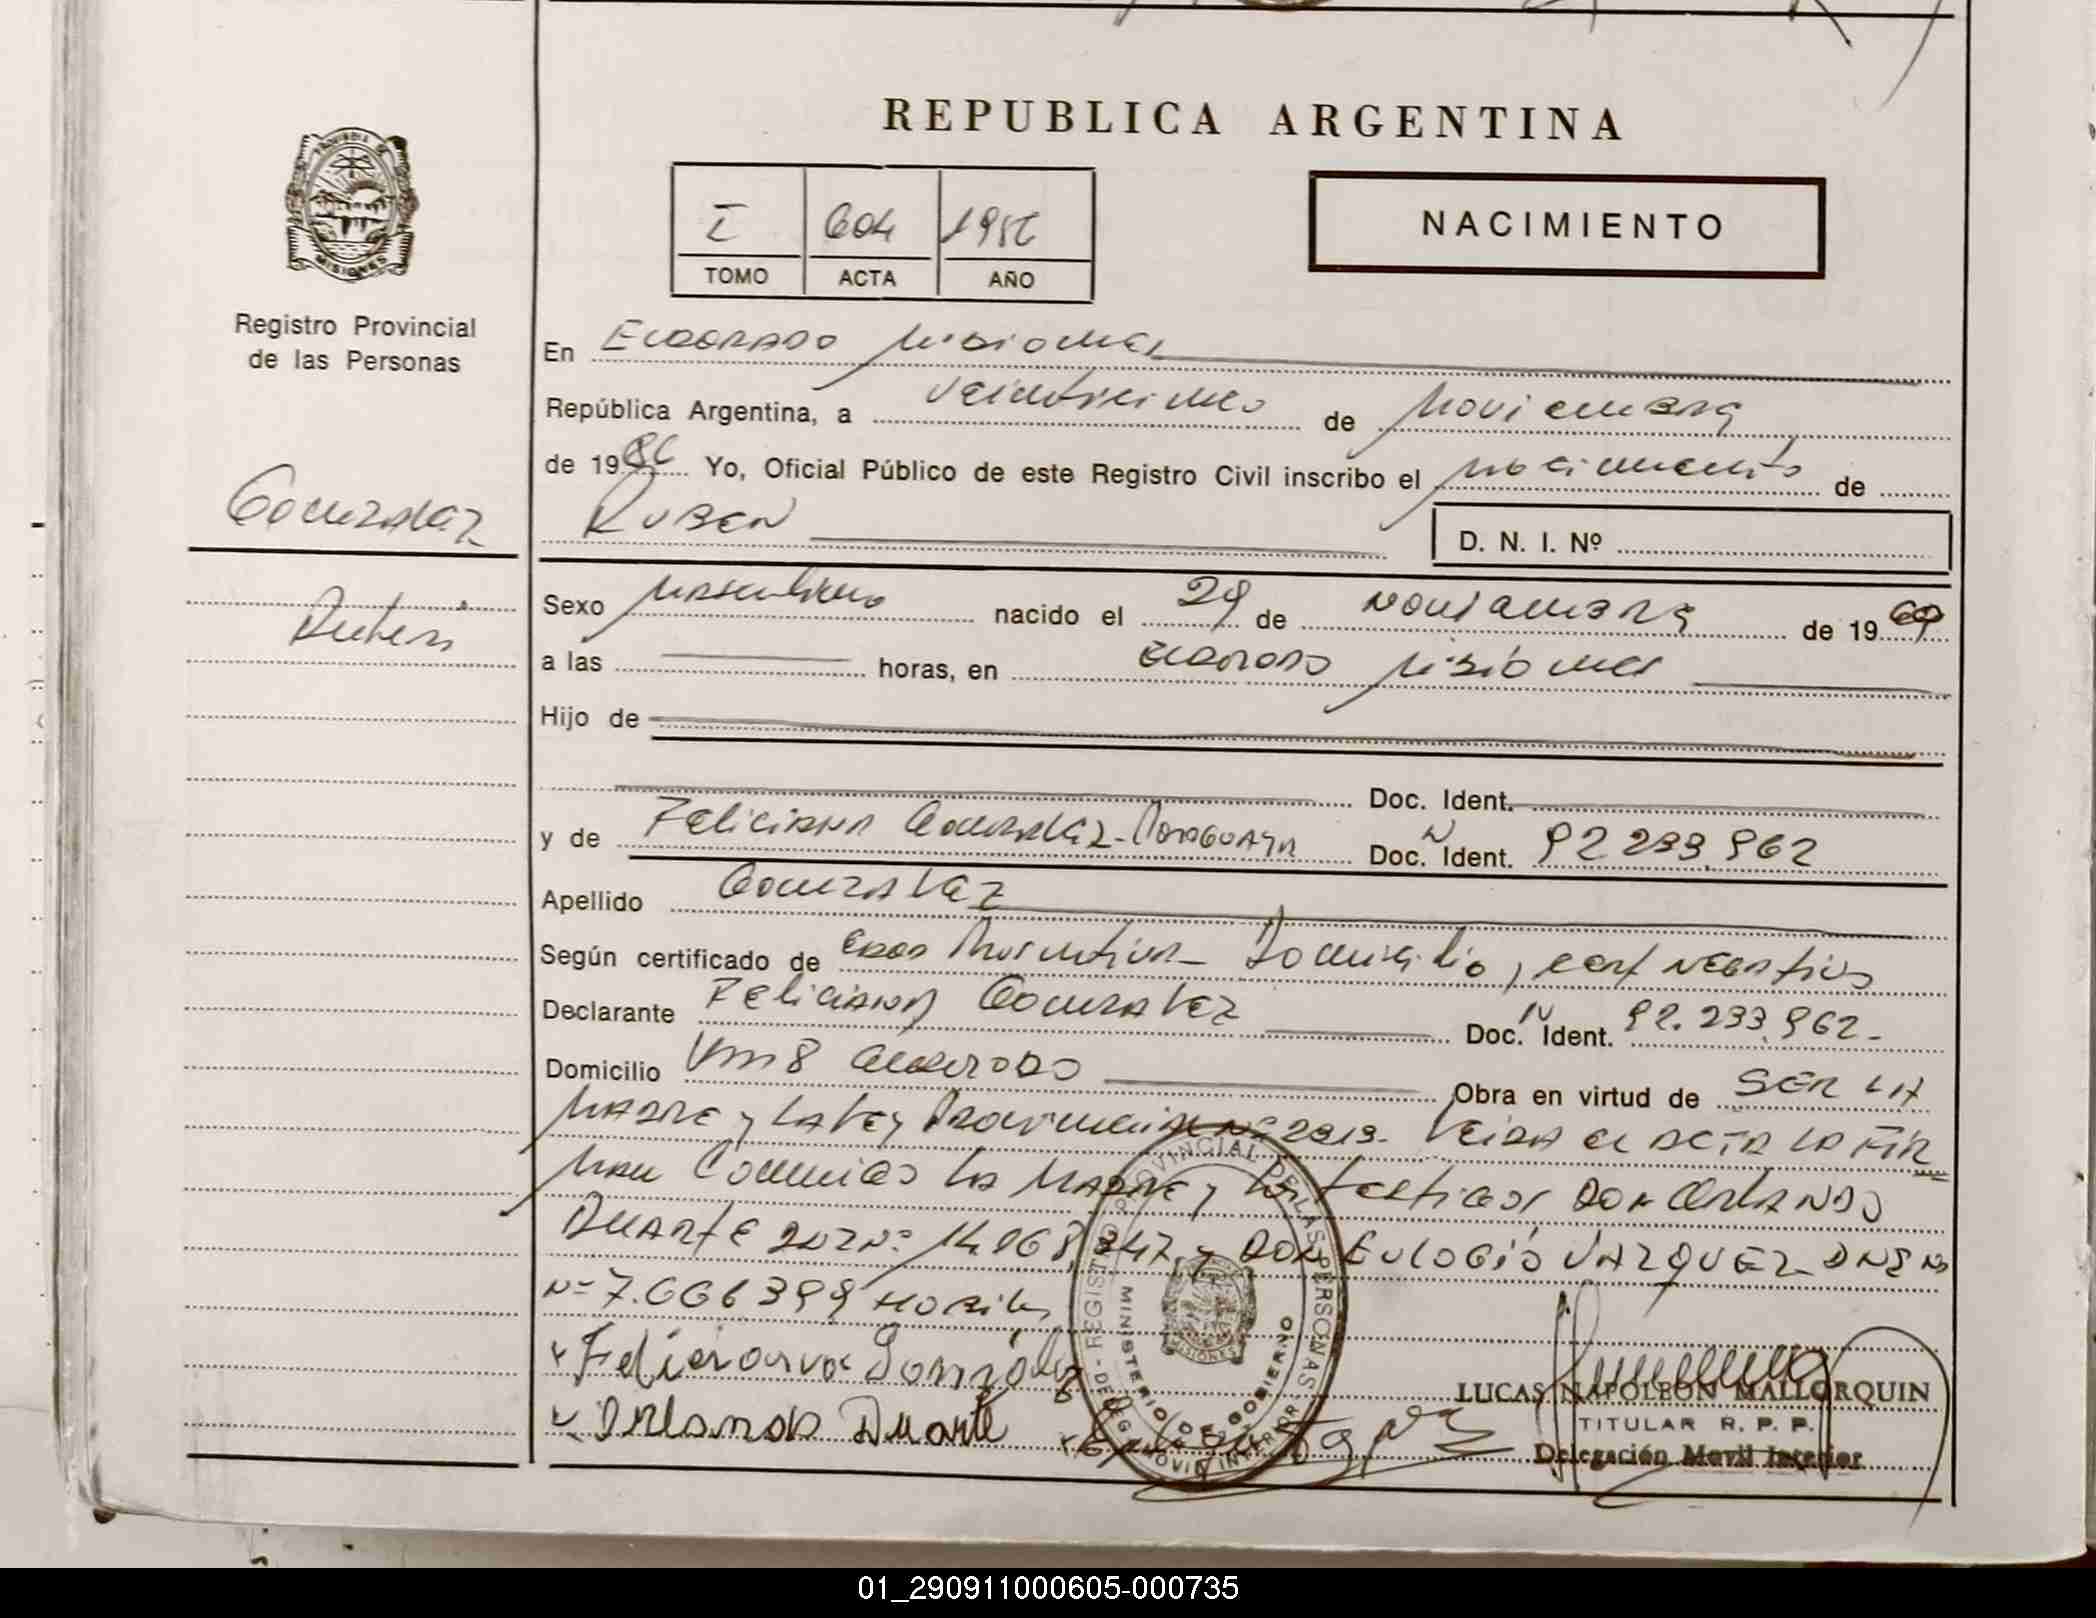 REPUBLICA ARGENTINA
PROVINCIA DE
MISIONES
I 604 1986
TOMO ACTA AÑO
NACIMIENTO
Registro Provincial
de las Personas
En Eldorado Misiones
República Argentina, a veinticinco de Noviembre
de 1986 Yo, Oficial Público de este Registro Civil inscribo el nacimiento de
Gonzalez
Ruben
D. N. I. Nº
Ruben
Sexo Masculino nacido el 29 de Noviembre de 1969
a las horas, en Eldorado Misiones
Hijo de
Doc. Ident.
y de Feliciana Gonzalez - Paraguaya Doc. Ident. N 92 233.962
Apellido Gonzalez
Según certificado de Edad Presuntiva - Domicilio, cert negativo
Declarante Feliciana Gonzalez Doc. Ident. N 92.233.962-
Domicilio Km 8 Eldorado Obra en virtud de SER LA
Madre y La Ley Provincial Nº 2319. Leida el acta la fir
man conmigo la Madre y los testigos Don Orlando
Duarte Nº 14.968.247 y Don Eulogio Vazquez
Nº 7.666399
Feliciana González
Orlando Duarte
REGISTRO PROVINCIAL DE LAS PERSONAS
MINISTERIO DE GOBIERNO
MISIONES
LUCAS NAPOLEON MALLORQUIN
TITULAR R. P. P.
Delegación Movil Interior
01_290911000605-000735